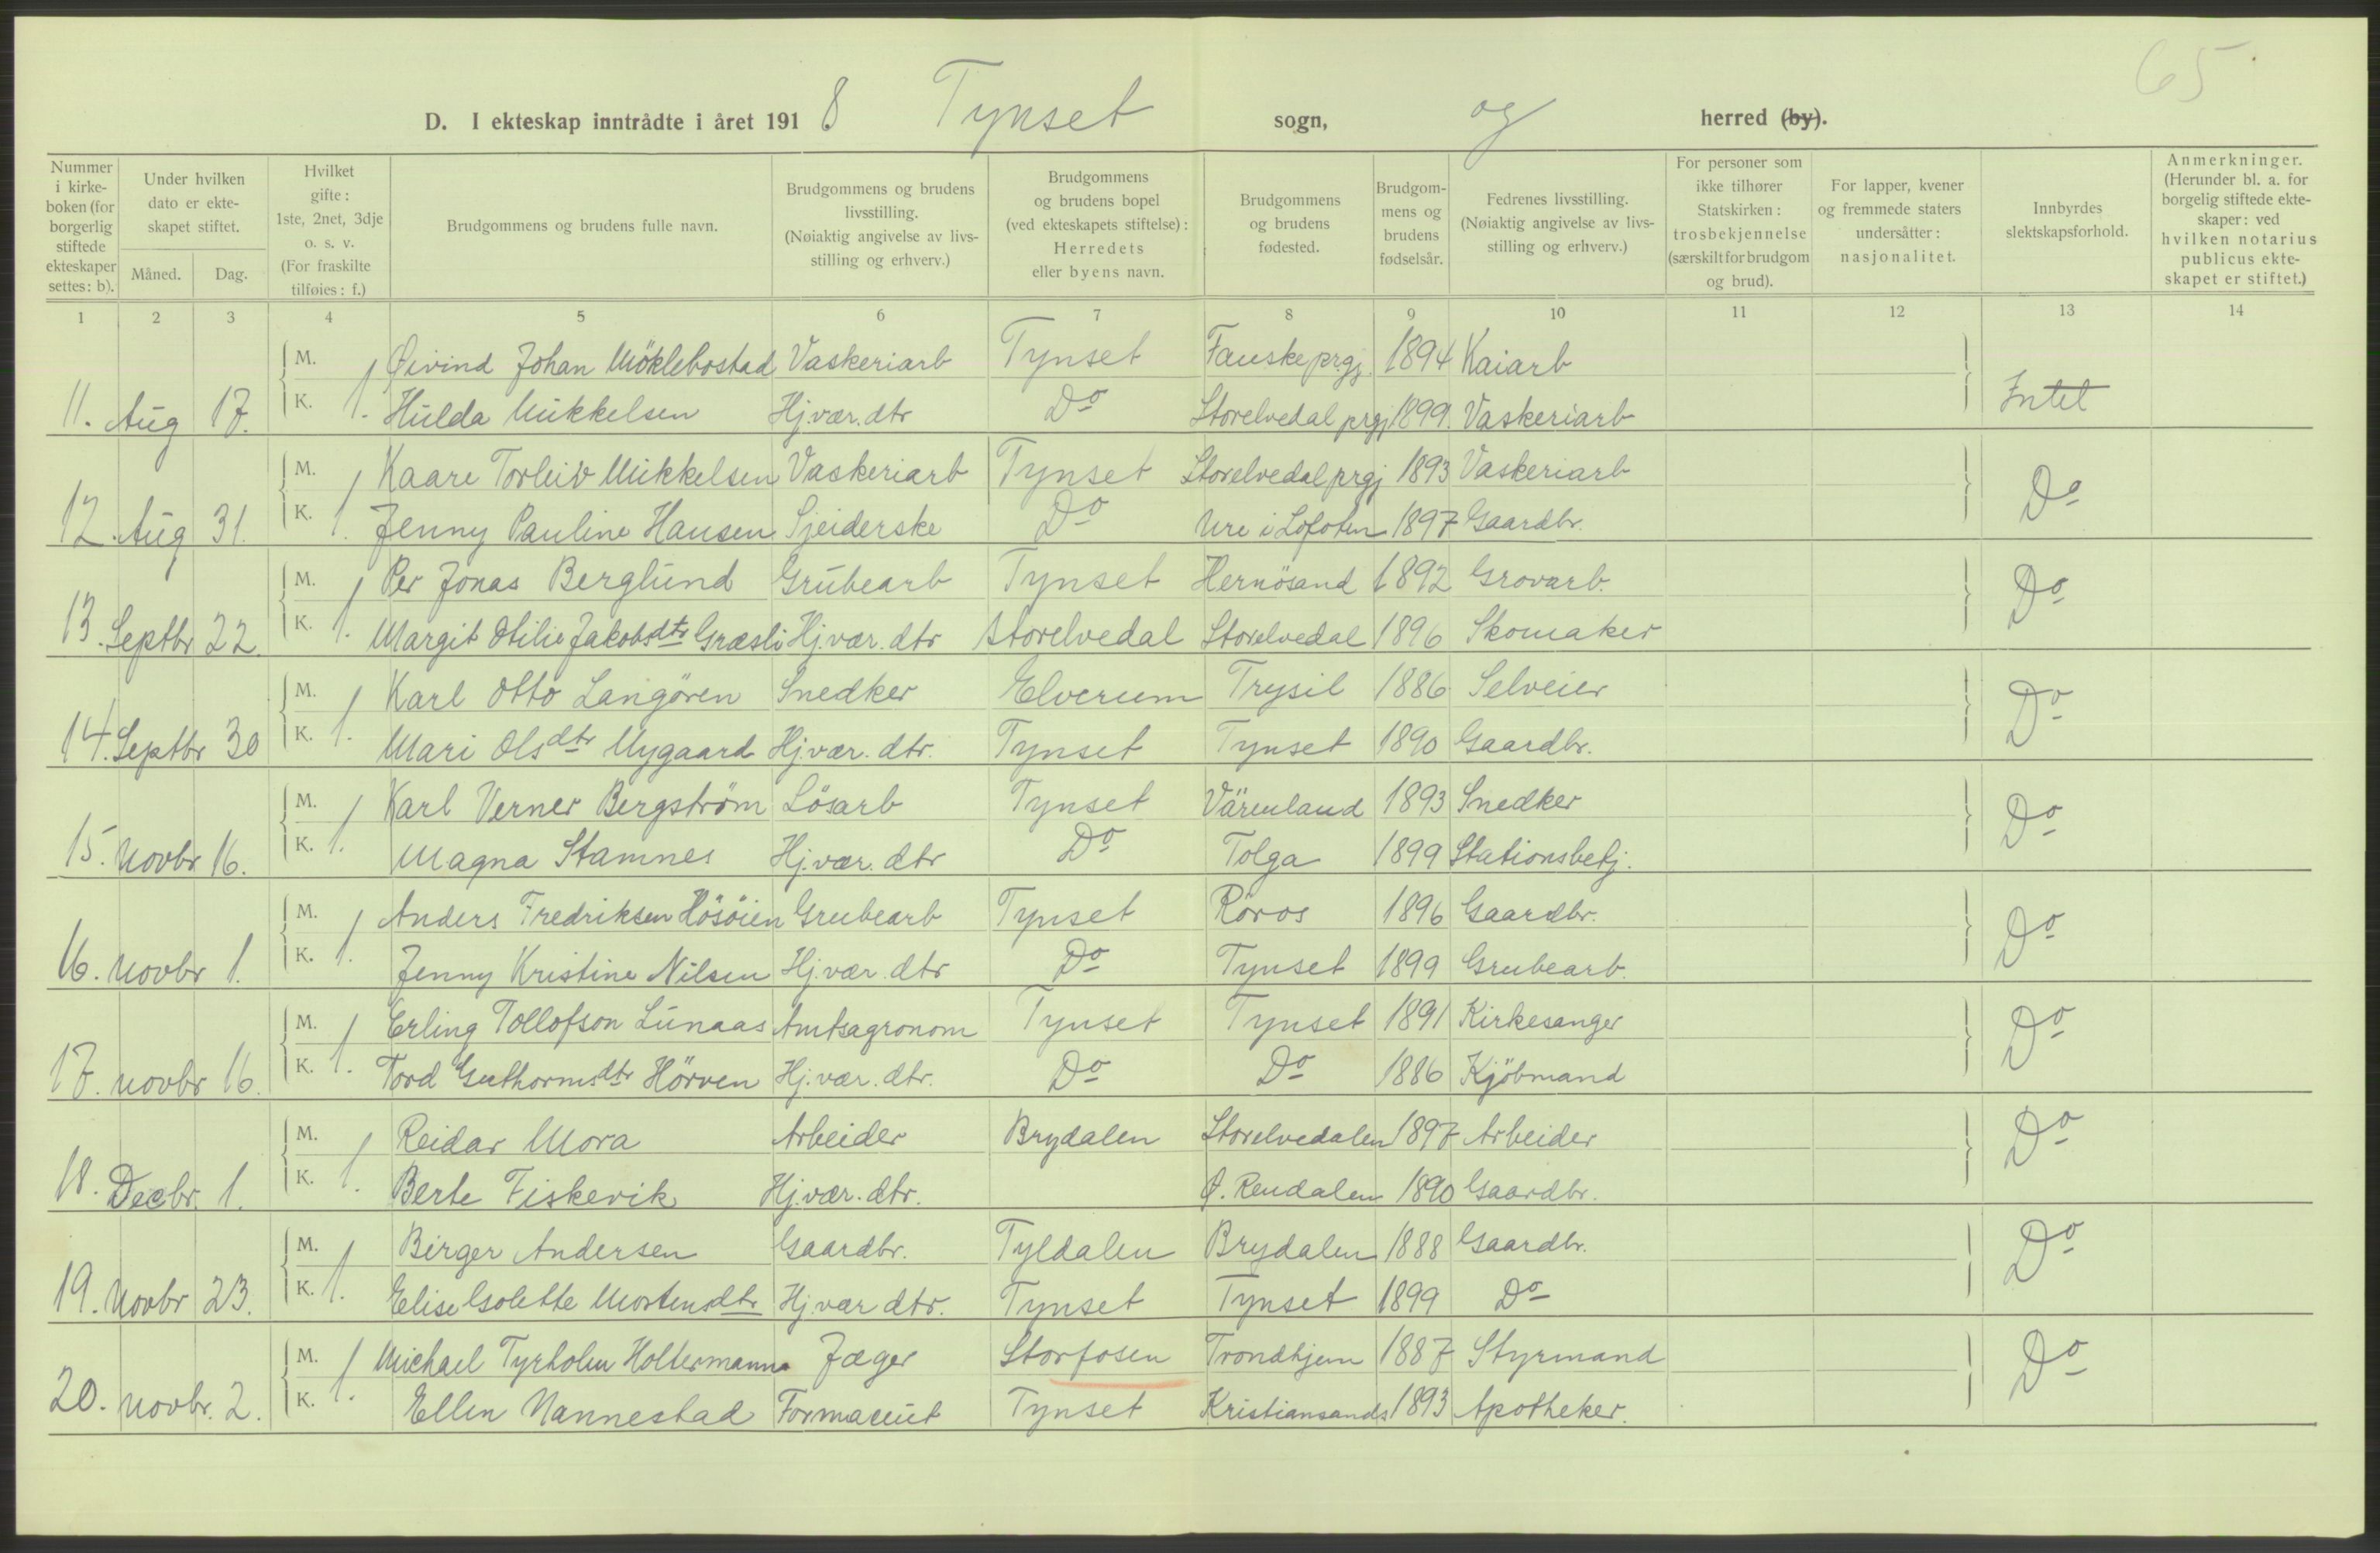 65
D. I ekteskap inntrådte i året 1918 Tynset sogn, og herred (by).
Nummer i kirkeboken (for borgerlig stiftede ekteskaper settes: b).
Under hvilken dato er ekteskapet stiftet.
Måned. Dag.
Hvilket gifte: 1ste, 2net, 3dje o. s. v. (For fraskilte tilføies: f.)
Brudgommens og brudens fulle navn.
Brudgommens og brudens livsstilling. (Nøiaktig angivelse av livsstilling og erhverv.)
Brudgommens og brudens bopel (ved ekteskapets stiftelse): Herredets eller byens navn.
Brudgommens og brudens fødested.
Brudgommens og brudens fødselsår.
Fedrenes livsstilling. (Nøiaktig angivelse av livsstilling og erhverv.)
For personer som ikke tilhører Statskirken: trosbekjennelse (særskilt for brudgom og brud).
For lapper, kvener og fremmede staters undersåtter: nasjonalitet.
Innbyrdes slektskapsforhold.
Anmerkninger. (Herunder bl. a. for borgelig stiftede ekteskaper: ved hvilken notarius publicus ekteskapet er stiftet.)
1 2 3 4 5 6 7 8 9 10 11 12 13 14
M. Øivind Johan Möklebostad Vaskeriarb Tynset Fauske prgj. 1894 Kaiarb
11. Aug 17. K. 1. Hulda Mikkelsen Hj.vær.dtr Do Storelvedal prgj 1899. Vaskeriarb Intet
M. Kaare Torleiv Mikkelsen Vaskeriarb Tynset Storelvedal prgj 1893 Vaskeriarb
12. Aug 31. K. 1. Jenny Pauline Hansen Sjeiderske Do Ure i Lofoten 1897 Gaardbr. Do
M. Per Jonas Berglund Grubearb Tynset Hernösand 1892 Grovarb.
13. Septbr 22. K. 1. Margit Otilie Jakobsdtr Græsli Hj.vær.dtr Storelvedal Storelvedal 1896 Skomaker Do
M. Karl Otto Langören Snedker Elverum Trysil 1886 Selveier
14. Septbr 30 K. 1. Mari Olsdtr Nygaard Hj.vær.dtr. Tynset Tynset 1890 Gaardbr. Do
M. Karl Verner Bergström Lösarb Tynset Värmland 1893 Snedker
15. Novbr 16. K. 1. Magna Stamnes Hj.vær.dtr Do Tolga 1899 Stationsbetj. Do
M. Anders Fredriksen Hösöien Grubearb Tynset Röros 1896 Gaardbr.
16. Novbr 1. K. 1. Jenny Kristine Nilsen Hj.vær.dtr Do Tynset 1899 Grubearb. Do
M. Erling Tollofson Lunaas Amtsagronom Tynset Tynset 1891 Kirkesanger
17. Novbr 16. K. 1. Tord Guthormsdtr Hörven Hj.vær.dtr. Do Do 1886 Kjöbmand Do
M. Reidar Mora Arbeider Brydalen Storelvedalen 1897 Arbeider
18. Decbr. 1. K. 1. Berte Fiskevik Hj.vær.dtr. Ø. Rendalen 1890 Gaardbr. Do
M. Birger Andersen Gaardbr. Tyldalen Brydalen 1888 Gaardbr.
19. Novbr 23. K. 1. Elise Golette Mortensdtr Hj.vær dtr. Tynset Tynset 1899 Do Do
M. Michael Tyrholm Holtermann Jæger Storfosen Trondhjem 1887 Styrmand
20. Novbr. 2. K. 1. Ellen Nannestad Formaceut Tynset Kristiansands 1893 Apotheker. Do